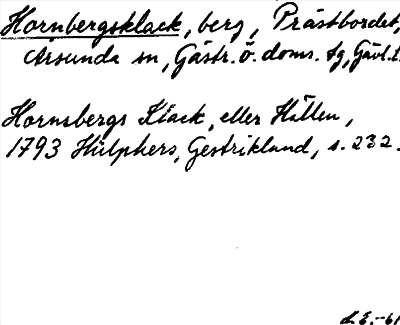 Hornbergsklack, berg, Prästbordet,
Årsunda sn, Gästr. ö. doms. tg, Gävl. l.
Hornsbergs Klack, eller Hällen,
1793 Hülphers, Gestrikland, s. 232.
L.E. -61